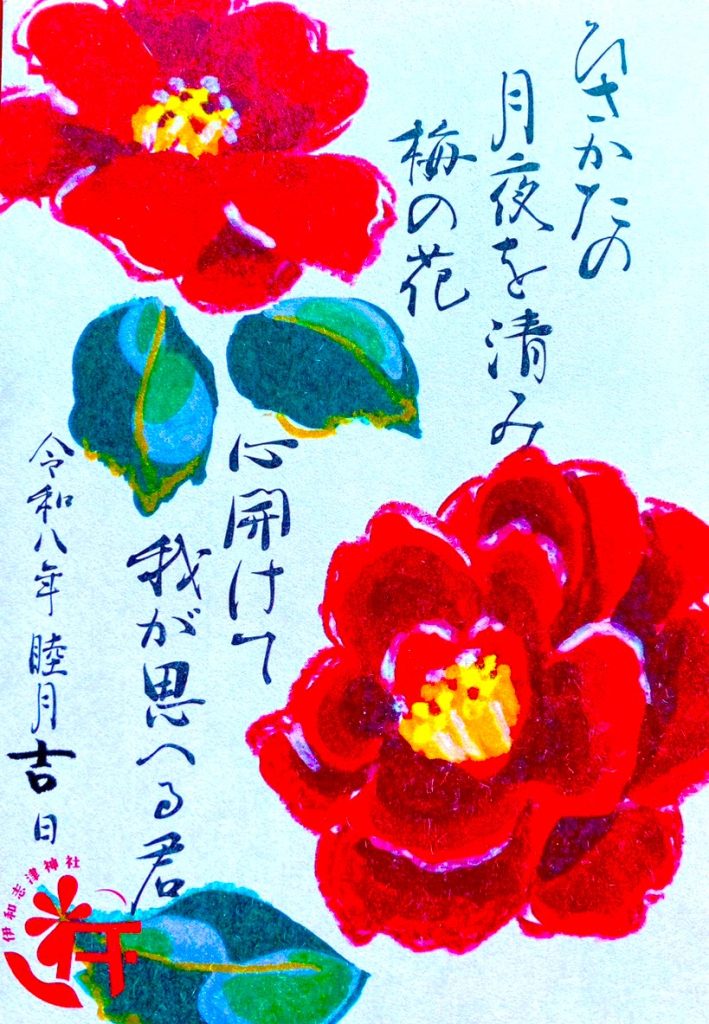 ひさかたの
月夜を清み
梅の花
心開けて
我が思へる君
令和八年 睦月吉日
伊和志津神社